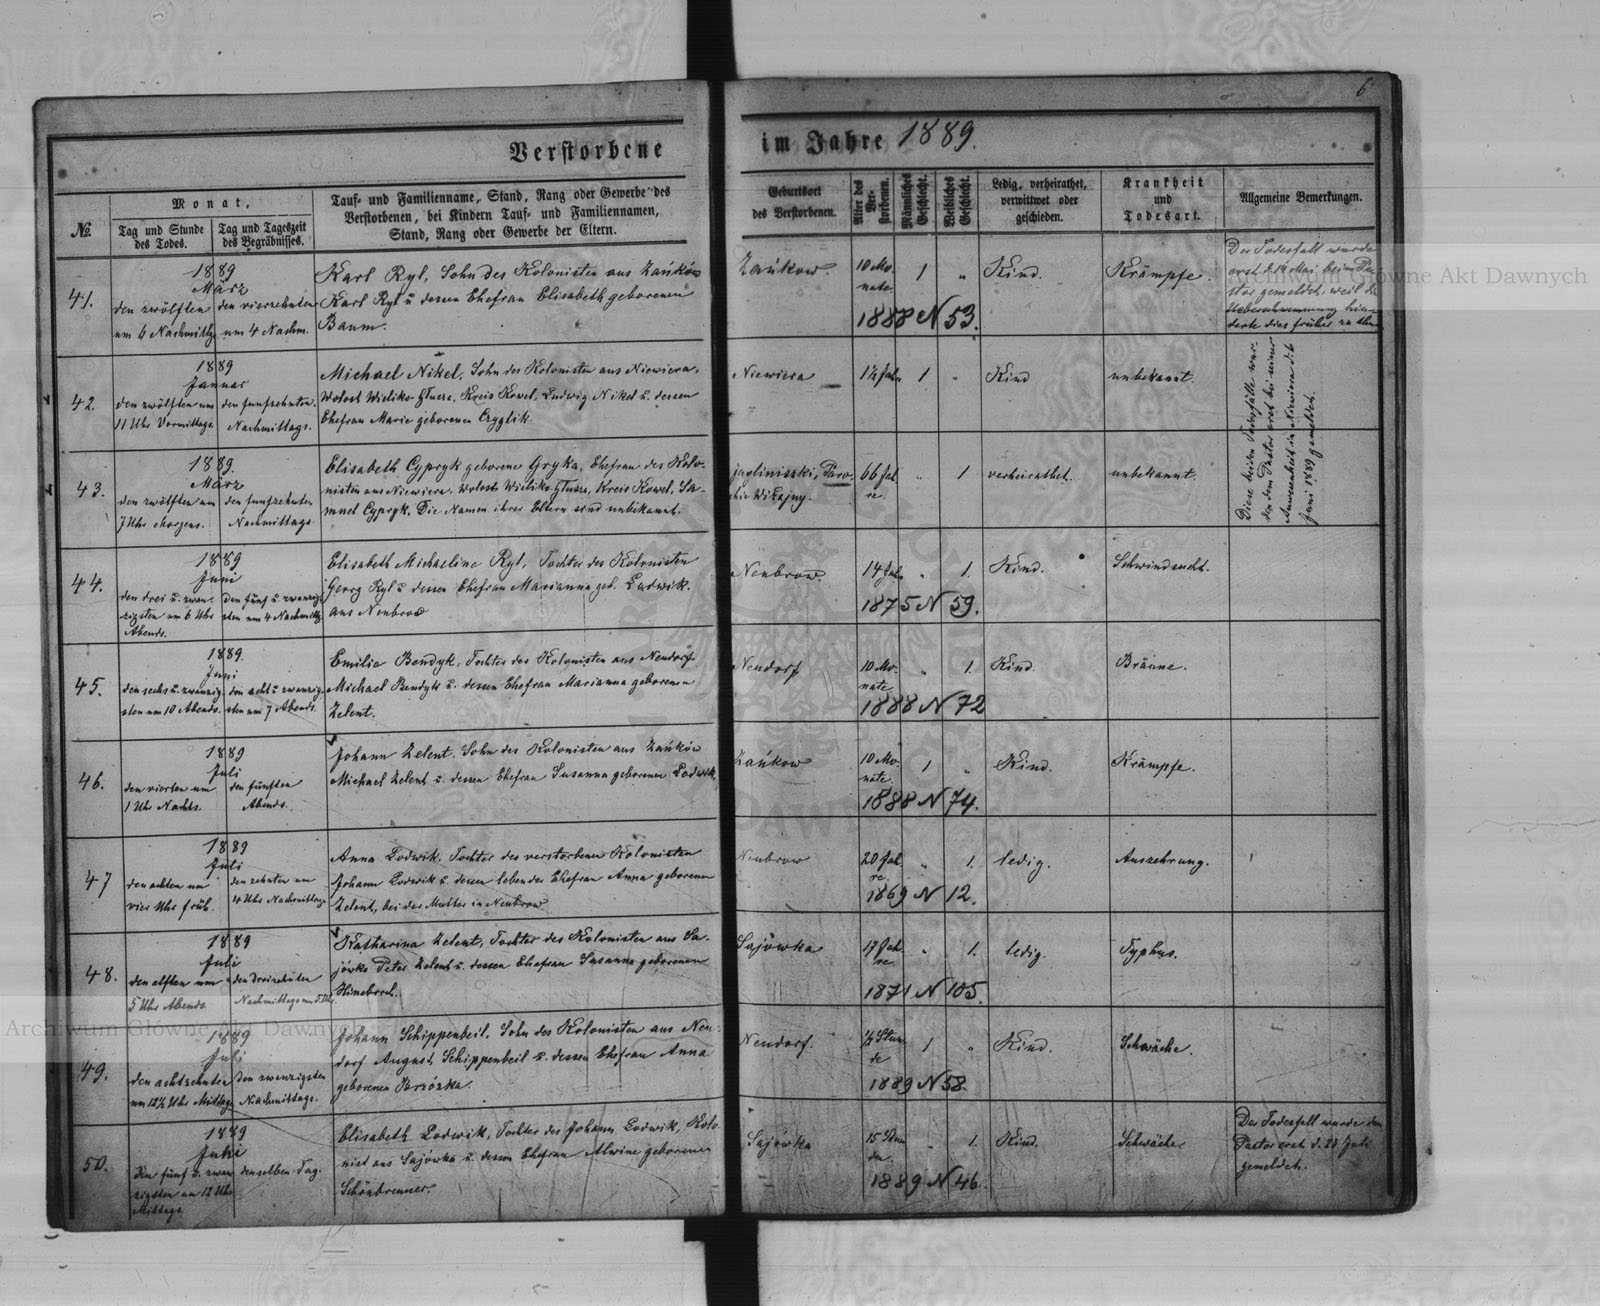 6
Verstorbene im Jahre 1889.
№.
Monat,
Tag und Stunde des Todes.
Tag und Tageszeit des Begräbnisses.
Tauf- und Familienname, Stand, Rang oder Gewerbe des
Verstorbenen, bei Kindern Tauf- und Familiennamen,
Stand, Rang oder Gewerbe der Eltern.
Geburtsort
des Verstorbenen.
Alter des Verstorbenen.
Männliches Geschlecht.
Weibliches Geschlecht.
Ledig, verheirathet,
verwittwet oder
geschieden.
Krankheit
und
Todesart.
Allgemeine Bemerkungen.
41.
1889
März
den zwölften
um 6 Nachmittg.
den vierzehnten
um 4 Nachm.
Karl Ryl, Sohn des Kolonisten aus Zańków
Karl Ryl u. dessen Ehefrau Elisabeth geborenen
Baum.
Zańkow.
10 Mo-
nate
1
"
Kind.
Krämpfe.
1888 N 53.
Der Todesfall wurde
erst d. 14 Mai beim Pa-
stor gemeldet, weil die
Ueberschwemmung hin-
derte dies früher zu thun
42.
1889
Januar
den zwölften um
11 Uhr Vormittags
den fünfzehnten
Nachmittags.
Michael Nikel, Sohn des Kolonisten aus Niewiera,
Wolost Wieliko-Głusza, Kreis Kowel, Ludwig Nikel u. dessen
Ehefrau Marie geborenen Czyglik.
Niewiera
1
"
Kind
unbekannt.
Diese beiden Todesfälle wur-
den dem Pastor erst bei seiner
Anwesenheit in Niewiera d. 6
Juni 1889 gemeldet.
43.
1889.
März
den zwölften um
7 Uhr Morgens.
den fünfzehnten
Nachmittags.
Elisabeth Cypryk geborene Gryka, Ehefrau des Kolo-
nisten aus Niewiera, Wolost Wieliko-Głusza, Kreis Kowel, Sa-
muel Cypryk. Die Namen ihrer Eltern sind unbekannt.
66 Jah
re.
"
1
verheirathet.
unbekannt.
44.
1889
Juni
den drei u. zwan-
zigsten um 6 Uhr
Abends.
den fünf u. zwanzig
sten um 4 Nachmittg.
Elisabeth Michaeline Ryl, Tochter des Kolonisten
Georg Ryl u. dessen Ehefrau Marianna geb. Ludwik.
aus Neubrow
Neubrow.
14 Jah.
"
1.
Kind.
Schwindsucht.
1875 N 59.
45.
1889.
Juni
den sechs u. zwanzig
sten um 10 Abends.
den acht u. zwanzig
sten um 7 Abends.
Emilie Bendyk, Tochter des Kolonisten aus Neudorf
Michael Bendyk u. dessen Ehefrau Marianna geborenen
Zelent.
Neudorf
10 Mo-
nate
"
1.
Kind.
Bräune.
1888 N 72
46.
1889
Juli
den vierten um
1 Uhr Nachts.
den fünften
Abends.
Johann Zelent, Sohn des Kolonisten aus Zańków
Michael Zelent u. dessen Ehefrau Susanna geborenen Lodwik
Zańkow
10 Mo-
nate.
1
"
Kind.
Krämpfe.
1888 N 74.
47
1889
Juli
den achten um
vier Uhr früh.
den zehnten um
4 Uhr Nachmittags
Anna Lodwik, Tochter des verstorbenen Kolonisten
Johann Lodwik u. dessen lebender Ehefrau Anna geborenen
Zelent, bei der Mutter in Neubrow
Neubrow
20 Jah
re.
"
1.
ledig.
Auszehrung.
1869 N 12.
48.
1889
Juli
den elften um
5 Uhr Abends
den dreizehnten
Nachmittags um 5 Uhr.
Katharina Zelent, Tochter des Kolonisten aus Sa-
jówka Peter Zelent u. dessen Ehefrau Susanna geborenen
Hineborch.
Sajówka
17 Jah
re.
"
1.
ledig.
Typhus.
1871 N 105.
49.
1889
Juli
den achtzehnten
um 12½ Uhr Mittags
den zwanzigsten
Nachmittags.
Johann Schippenbeil, Sohn des Kolonisten aus Neu-
dorf August Schippenbeil u. dessen Ehefrau Anna
geborenen Brzózka.
Neudorf.
½ Stun-
de
1
"
Kind.
Schwäche.
1889 N 58.
50.
1889
den fünf u. zwan
zigsten um 12 Uhr
Mittags
denselben Tag.
Elisabeth Lodwik, Tochter des Johann Lodwik, Kolo-
nist aus Sajówka u. dessen Ehefrau Alwine geborenen
Schönbrenner.
Sajówka
15 Stun
den.
"
1.
Kind.
Schwäche
1889 N 46.
Der Todesfall wurde dem
Pastor erst d. 23 Juli
gemeldet.
Archiwum Główne Akt Dawnych
Archiwum Główne Akt Dawnych